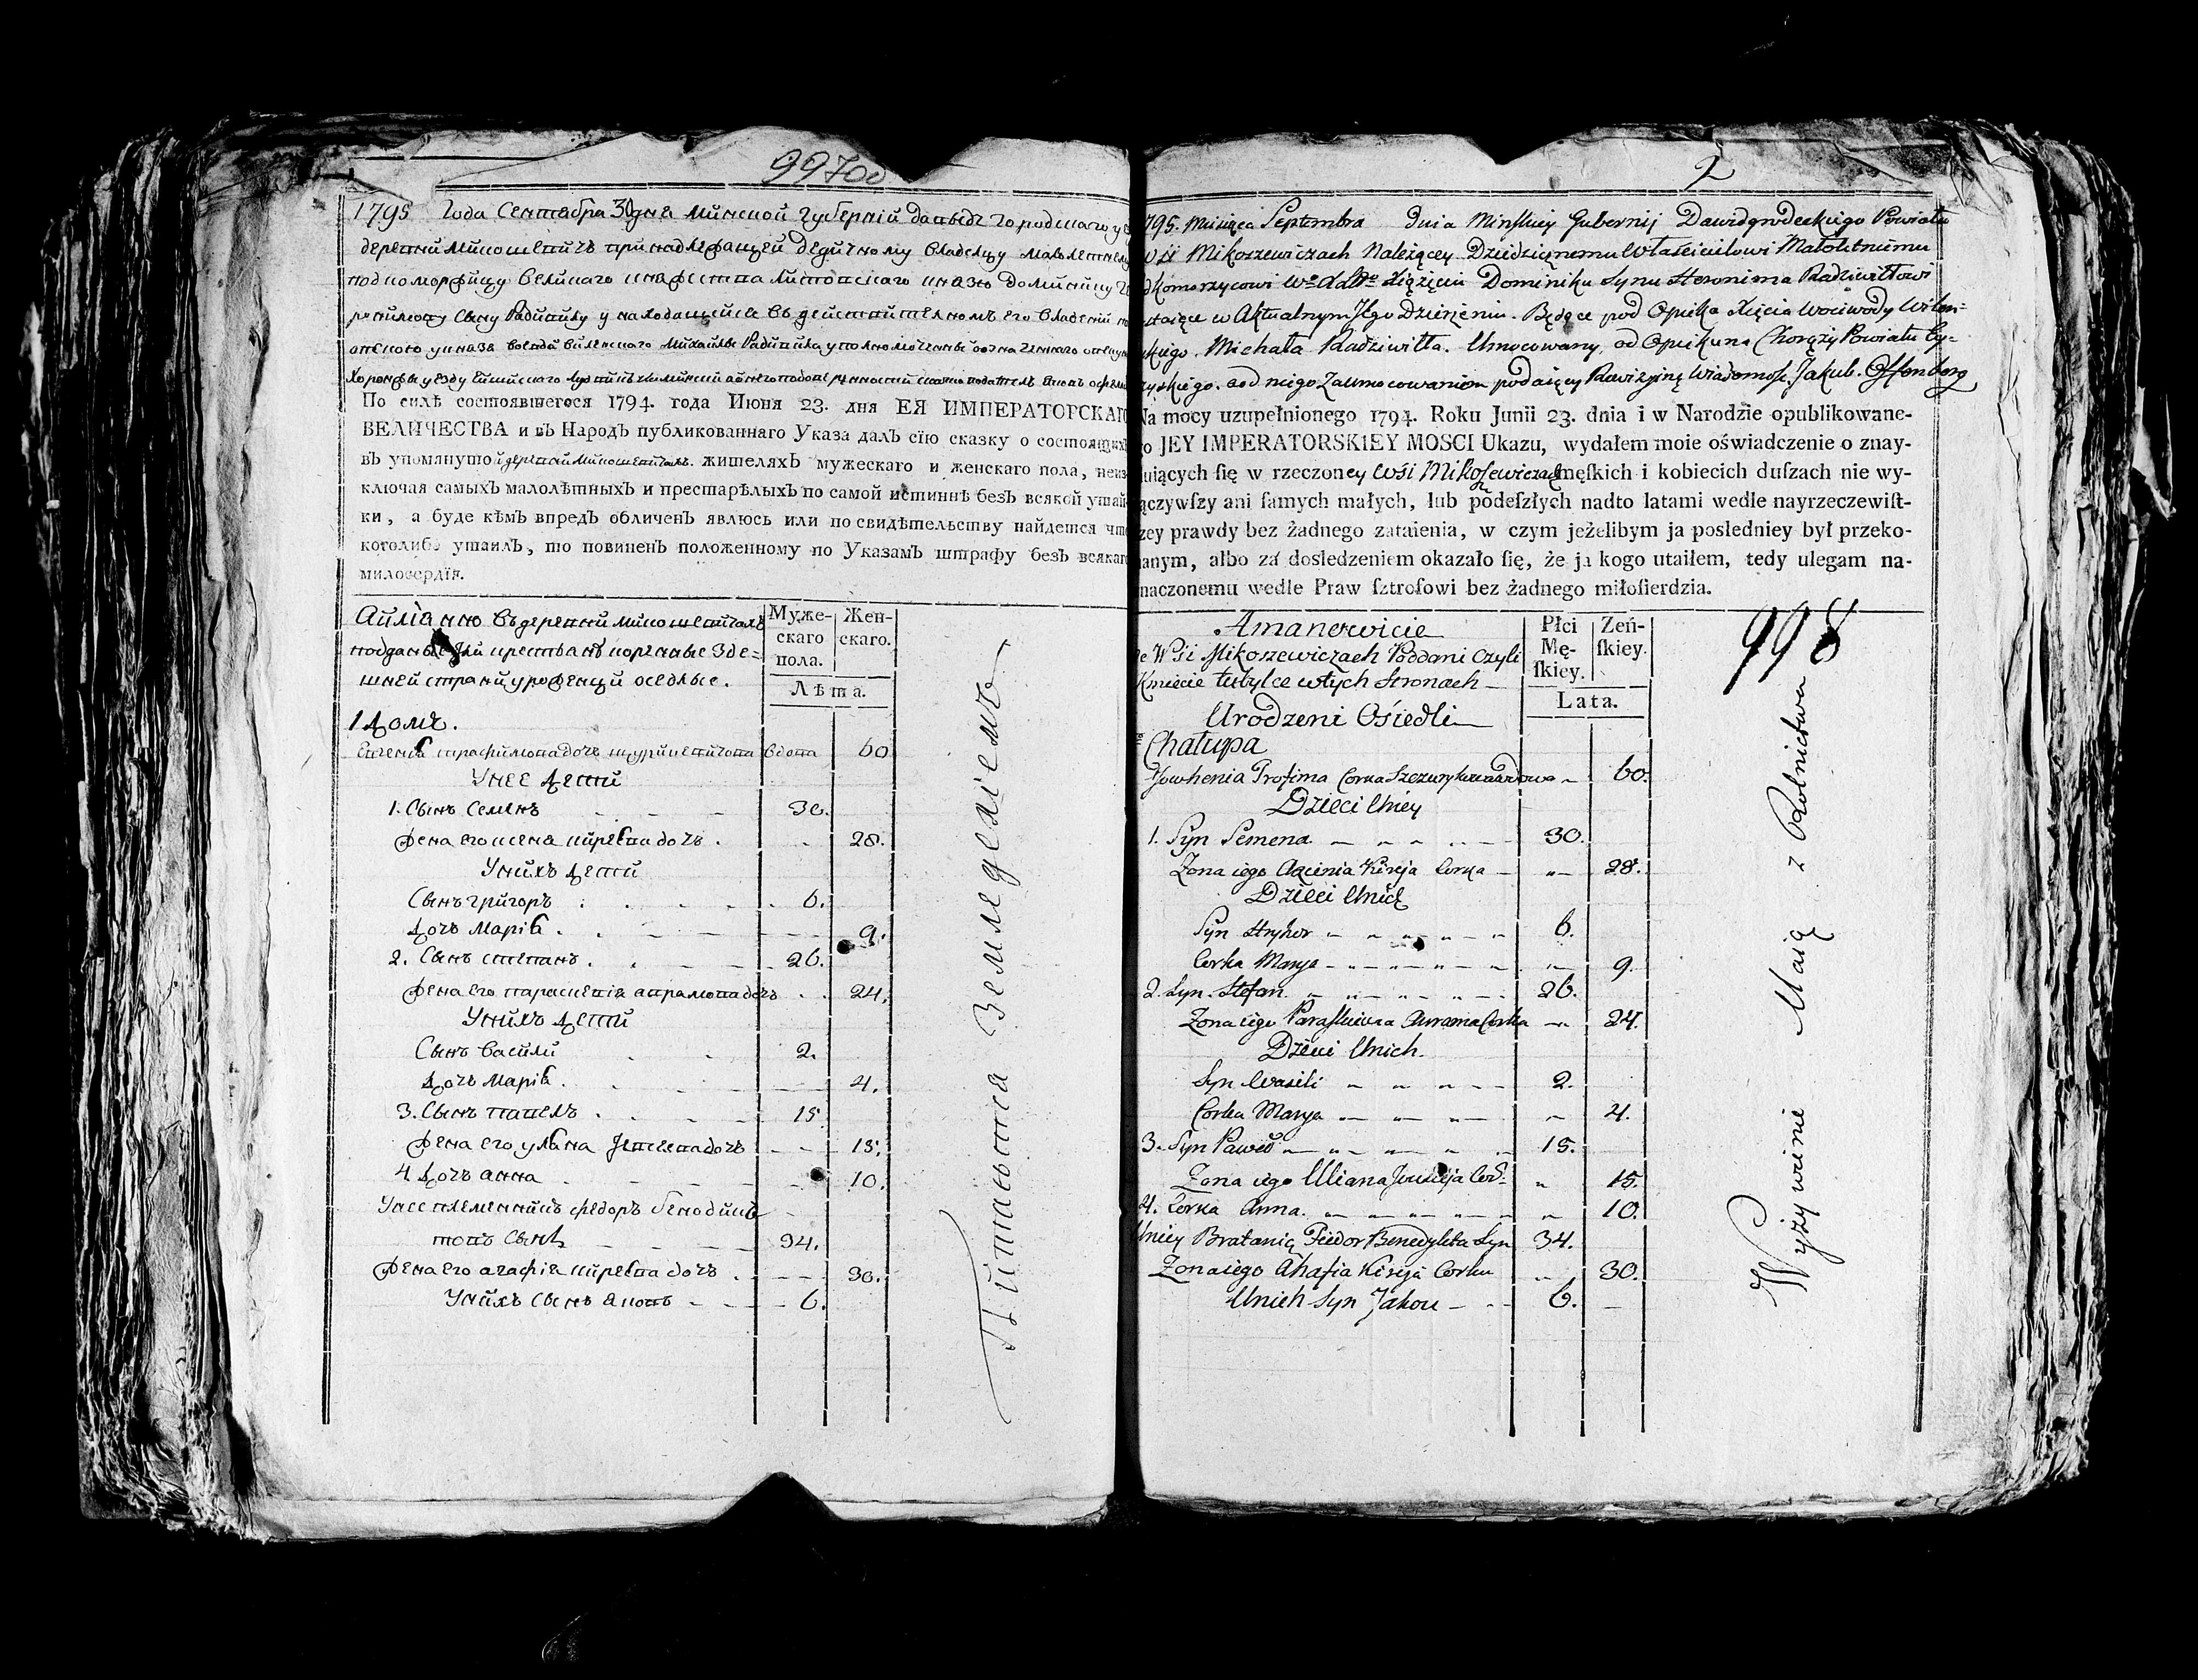 997об
1795 Года Сентебра 30 дня Минской Губерній Давыдъ городскаго
деревни Микошевичъ принадлежащей дедичному владелцу малолетнему
подкоморжицу великаго княжества Литовскаго князю Доминику
сыну Радивилу у находящейсе въ действителномъ его владеній
воеводы виленскаго Михайлы Радивила уполномоченны
Хоронжи уезду
По силѣ состоявшегося 1794. года Июня 23. дня ЕЯ ИМПЕРАТОРСКАГО
ВЕЛИЧЕСТВА и въ Народъ публикованнаго Указа далъ сїю сказку о состоящихъ
въ упомянутой деревни Микошевичахъ жителяхъ мужескаго и женскаго пола, неиз-
ключая самыхъ малолѣтныхъ и престарѣлыхъ по самой истиннѣ безъ всякой утай-
ки, а буде кѣмъ впредъ обличенъ явлюсь или по свидѣтельству найдется что
коголибо утаилъ, то повиненъ положенному по Указамъ штрафу безъ всякаго
милосердїя.
А имѧнно въ деревни Микошевичахъ
коренные зде=
шней страни уроженци оседлые.
Муже-
скаго
пола.
Жен-
скаго.
Лѣта.
1 Домъ.
трафимова дочъ вдова 60
У нее дети
1. Сынъ Семенъ 30.
жена его ксеня кирѣева дочъ. 28.
У нихъ дети
Сынъ григоръ 6.
дочъ Марія 9.
2. Сынъ степанъ. 26.
жена его параскевія аврамова дочъ 24.
У нихъ дети
Сынъ Васили 2.
дочъ Марія. 4.
3. Сынъ павелъ. 15
жена его уляна дочъ 15.
4. дочъ анна 10.
У нее племенникъ федоръ бенодик
товъ сынъ 34.
жена его агафія кирѣева дочъ 30.
У нихъ сынъ яковъ 6.
Питаютса Земледеліемъ
2
795. Miesiąca Septembra dnia Minskiey Gubernij Dawidgrodeckiego Powiatu
Wsii Mikoszewiczach Należącey Dziedzicznemu Właścicielowi Małoletniemu
dkomorzycowi Xiążęciu Dominiku Synu Heronima Radziwiłłowi
w Aktualnym Jego Dzierżeniu. Będące pod Opieką Xięcia Woiwody Wilen-
skiego. Michała Radziwiłła. Umocowany od Opiekuna Chorąży Powiatu
a od niego zaumocowaniem podaiący Rewizyjną Wiadomość. Jakub. Offenberg
Na mocy uzupełnionego 1794. Roku Junii 23. dnia i w Narodzie opublikowane-
go JEY IMPERATORSKIEY MOSCI Ukazu, wydałem moie oświadczenie o znay-
duiących ſię w rzeczoney Wsi Mikoszewiczach męſkich i kobiecich duſzach nie wy-
łączywſzy ani ſamych małych, lub podeſzłych nadto latami wedle nayrzeczewiſt-
ſzey prawdy bez żadnego zataienia, w czym jeżelibym ja posledniey był przeko-
nanym, albo zá dosledzeniem okazało ſię, że ja kogo utaiłem, tedy ulegam na-
znaczonemu wedle Praw ſztrofowi bez żadnego miłoſierdzia.
998
Amanowicie
We Wsi Mikoszewiczach Poddani Czyli
Kmiecie tubylce wtych Stronach
Urodzeni Osiedli
Płci
Mę-
ſkiey.
Zeń-
ſkiey.
Lata.
Chałupa
Jowhenia Trofima Corka 60.
Dzieci Uniey
1. Syn Semena 30.
Zona iego Axienia Kireja Corka 28.
Dzieci Unich
Syn Hryhor 6.
Corka Marya 9.
2. Syn. Stefan 26.
Zona iego Paraskiewia Awrama Corka 24.
Dzieci Unich.
Syn Wasili 2.
Corka Marya 4.
3. Syn Paweł 15.
Zona iego Uliana Cor: 15.
4. Corka Anna. 10.
Uniey Bratanic Fiedor Benedykta Syn 34.
Zona iego Ahafia Kireja Corka 30.
Unich Syn Jakow 6.
Wyżywienie Maią z Rolnictwa